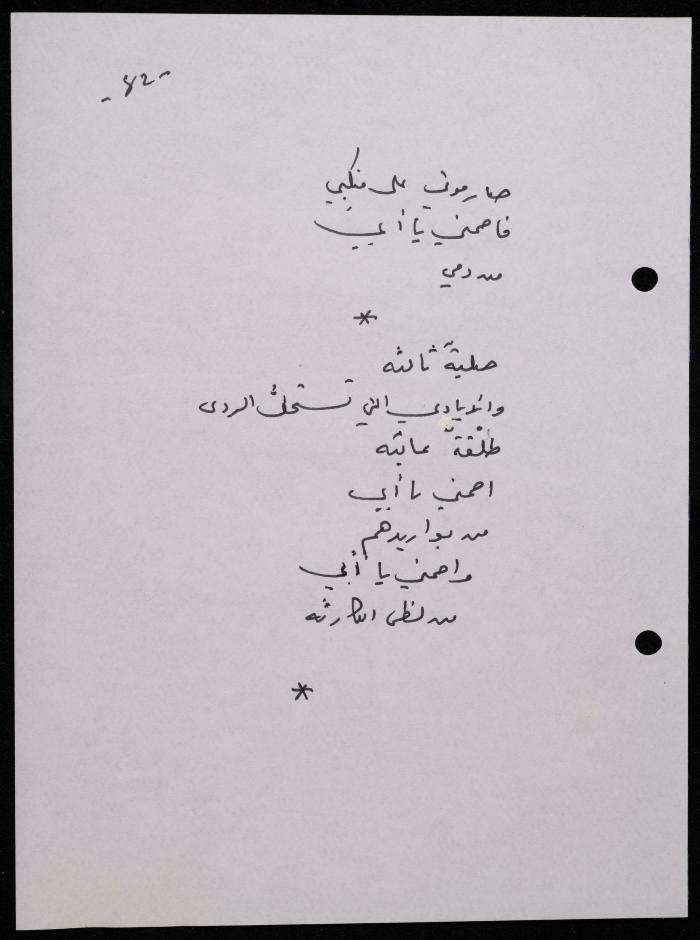 -82-
صار موتي على منكبي
فاحمني يا أبي
من دمي
*
صليةٌ ثالثه
والايادي التي تستحثُّ الردى
طلْقةٌ عابثه
احمني يا أبي
من بواريدهم
واحمني يا أبي
من لظى الكارثه
*